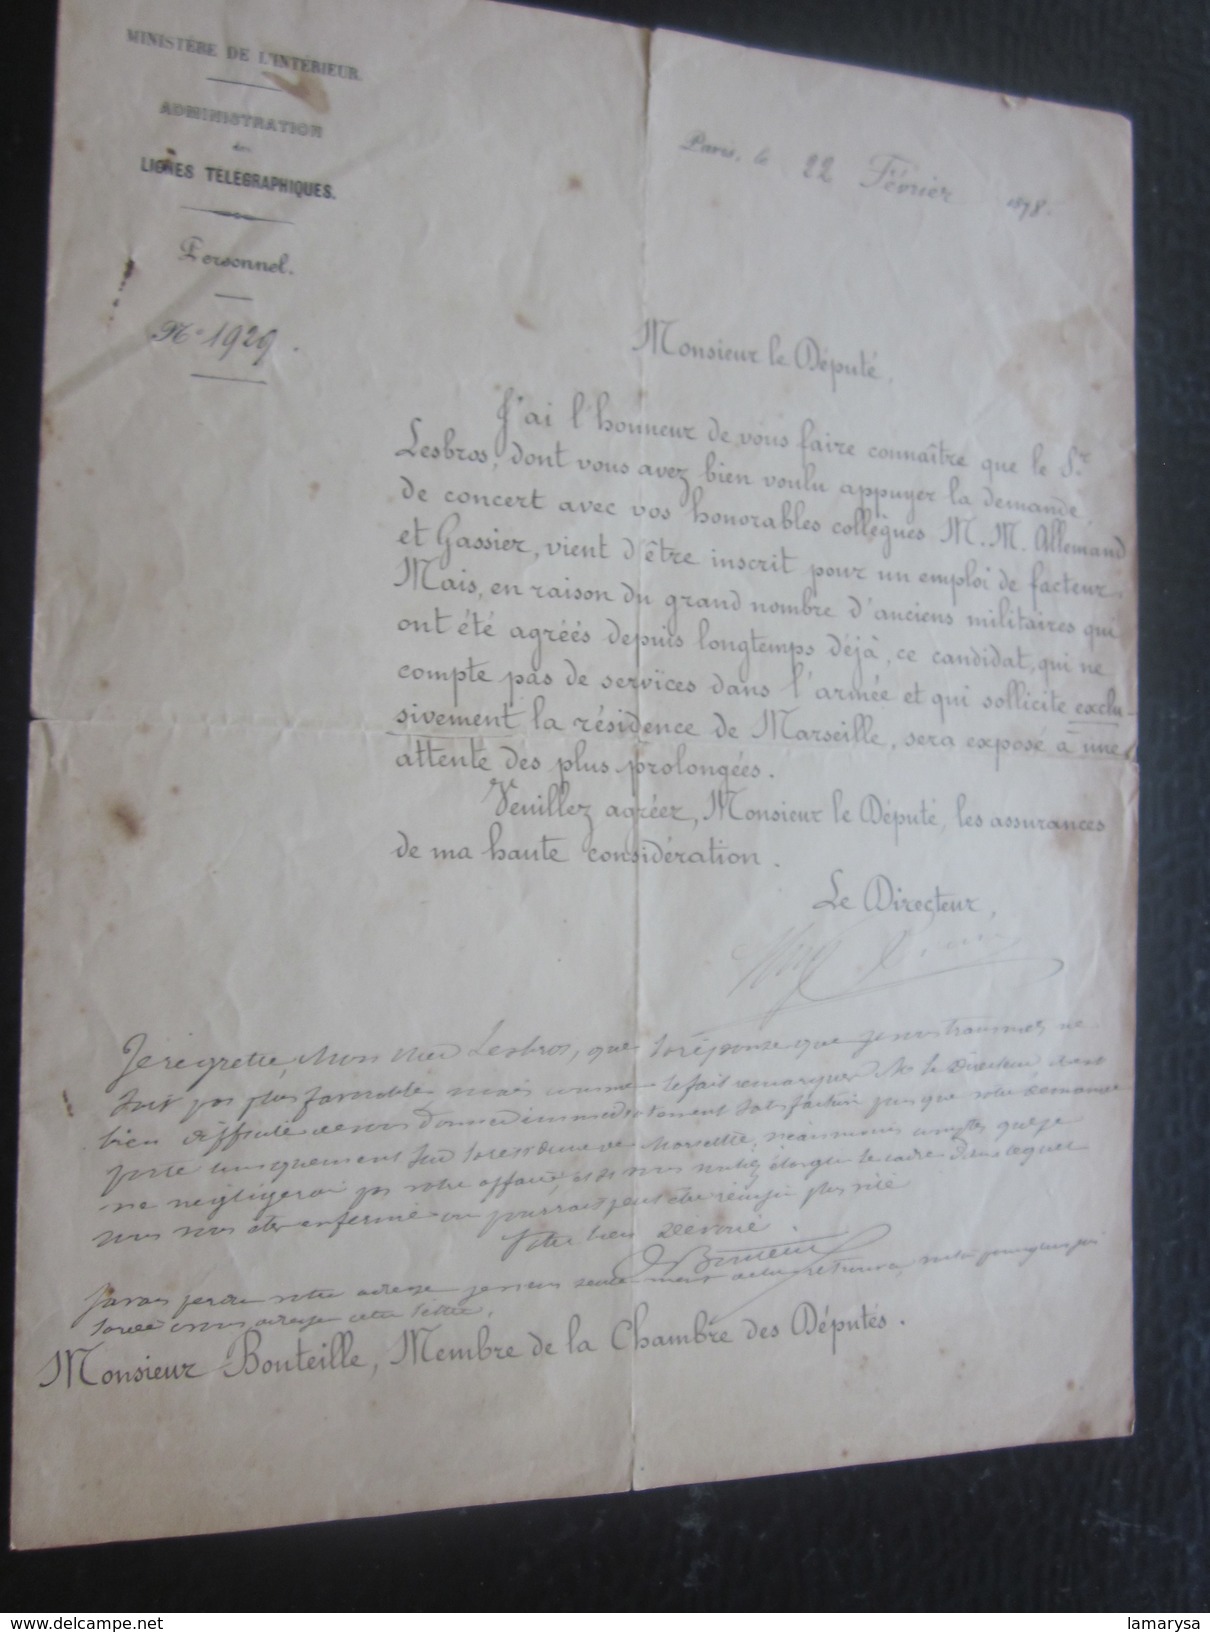 MINISTÈRE DE L'INTÉRIEUR.
ADMINISTRATION
des
LIGNES TÉLÉGRAPHIQUES.
Personnel.
N° 1929.
Paris, le 22 Février 1878.
Monsieur le Député,
J'ai l'honneur de vous faire connaître que le Sr
Lesbros, dont vous avez bien voulu appuyer la demande,
de concert avec vos honorables collègues M.M. Allemand
et Gassier, vient d'être inscrit pour un emploi de facteur.
Mais, en raison du grand nombre d'anciens militaires qui
ont été agréés depuis longtemps déjà, ce candidat, qui ne
compte pas de services dans l'armée et qui sollicite exclu-
sivement la résidence de Marseille, sera exposé à une
attente des plus prolongées.
Veuillez agréer, Monsieur le Député, les assurances
de ma haute considération.
Le Directeur,
Je regrette, Mon cher Lesbros, que la réponse que je vous transmets ne
soit pas plus favorable mais comme le fait remarquer M. le Directeur il est
bien difficile de vous donner immédiatement satisfaction puisque votre demande
porte uniquement sur la résidence de Marseille, néanmoins comptez que je
ne négligerai pas votre affaire, et si vous voulez élargir le cadre dans lequel
vous vous êtes enfermé on pourrait peut être réussir plus vite
Votre bien dévoué
Bouteille
J'avais perdu votre adresse je viens seulement de la retrouver, voilà pourquoi j'ai
tardé à vous adresser cette lettre.
Monsieur Bouteille, Membre de la Chambre des Députés.
lamarysa